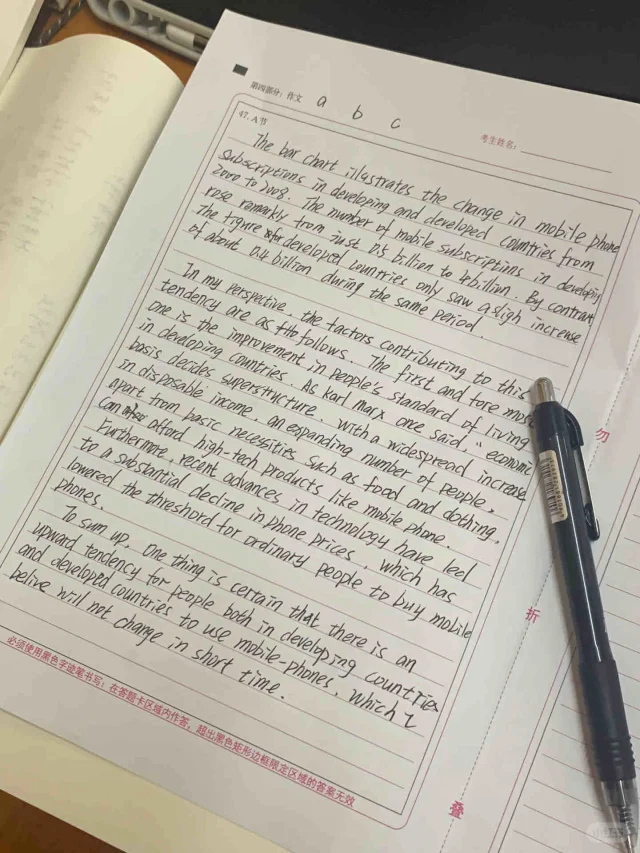 第四部分：作文 a b c
考生姓名：
47. A节
The bar chart illustrates the change in mobile phone
subscriptions in developing and developed countries from
2000 to 2008. The number of mobile subscriptions in developing
rose remarkly from just 0.5 billion to 4 billion. By contrast
The figure for developed countries only saw a sligh increase
of about 0.4 billion during the same period.
In my perspective, the factors contributing to this
tendency are as follows. The first and fore most
one is the improvement in people's standard of living
in developing countries. As Karl Marx once said, "economic
basis decides superstructure, with a widespread increase
in disposable income, an expanding number of people,
apart from basic necessities such as food and clothing,
can afford high-tech products like mobile phone.
Furthermore, recent advances in technology have led
to a substantial decline in phone prices, which has
lowered the threshord for ordinary people to buy mobile
phones.
To sum up, one thing is certain that there is an
upward tendency for people both in developing countries
and developed countries to use mobile-phones, which I
belive will not change in short time.
必须使用黑色字迹笔书写；在答题卡区域内作答，超出黑色矩形边框限定区域的答案无效
勿
折
叠